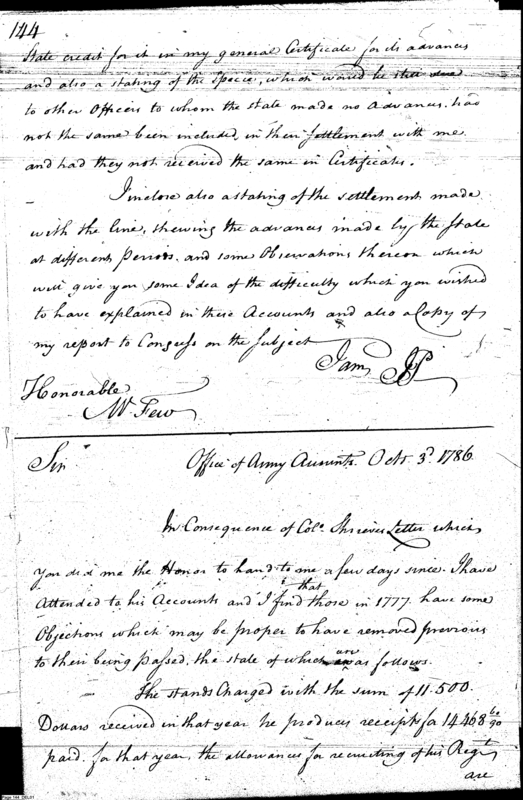 144
State credit for it in my general Certificate for its advances
and also a stating of the Specie, which would be still due
to other Officers to whom the state made no Advances, had
not the same been included, in their Settlement with me
and had they not received the same in Certificates.
I inclose also a stating of the settlement made
with the line, shewing the advances made by the State
at different Periods, and some Observations thereon which
will give you some Idea of the difficulty which you wished
to have explained in these Accounts and also a Copy of
my report to Congress on the Subject
I am JP
Honorable
Mr Few
Sir
Office of Army Accounts. Octr 3d 1786
In Consequence of Colo Shrieves Letter which
you did me the Honor to hand to me a few days since. I have
Attended to his Accounts and I find that those in 1777 have some
Objections which may be proper to have removed previous
to their being passed, the state of which are as follows.
He stands Charged with the sum of 11.500
Dollars received in that year he produces receipts for 14468 60/90
paid, for that year, the allowances for recruiting of his Regt
are
Page 144